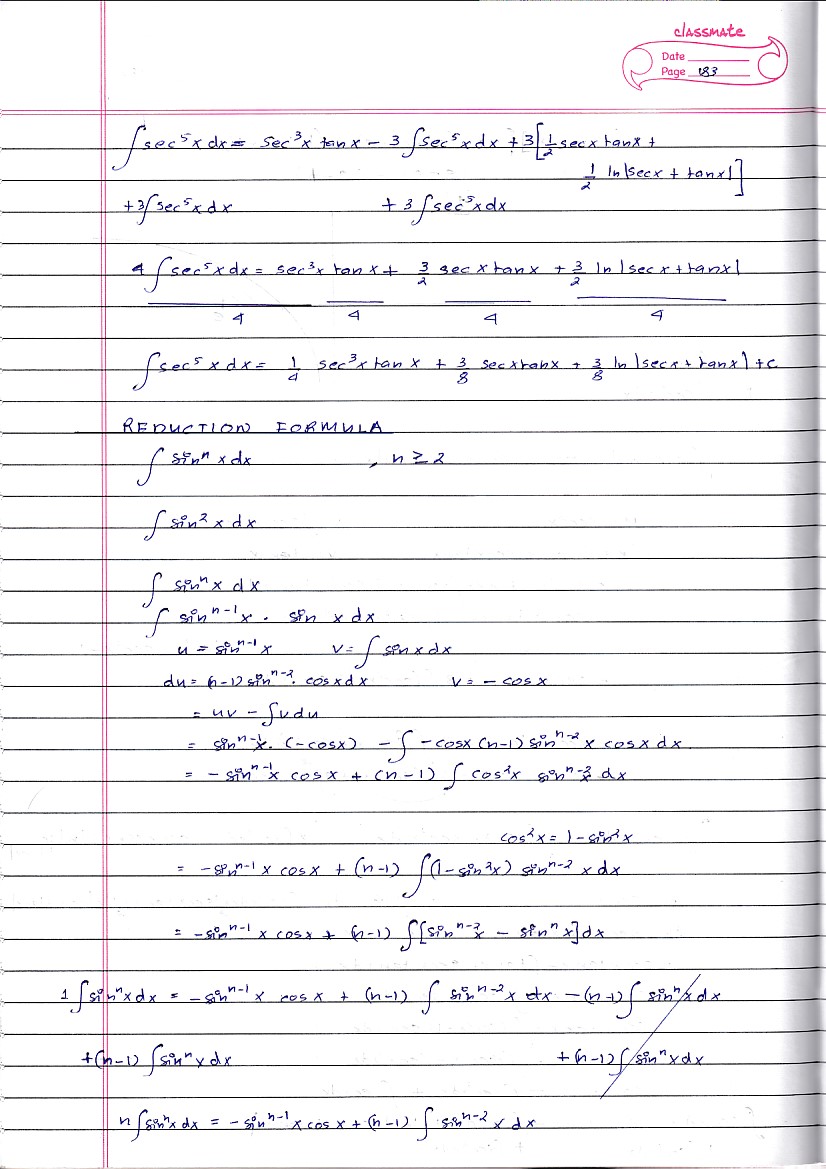 classmate
Date
Page 183
∫sec⁵x dx = sec³x tan x − 3∫sec⁵x dx + 3[½ sec x tan x +
½ ln|sec x + tan x|]
+3∫sec⁵x dx + 3∫sec⁵x dx
4∫sec⁵x dx = sec³x tan x + 3/2 sec x tan x + 3/2 ln|sec x + tan x|
4 4 4 4
∫sec⁵x dx = 1/4 sec³x tan x + 3/8 sec x tan x + 3/8 ln|sec x + tan x| + c
REDUCTION FORMULA
∫sinⁿ x dx , n ≥ 2
∫sin² x dx
∫sinⁿ x dx
∫sinⁿ⁻¹x · sin x dx
u = sinⁿ⁻¹x v = ∫sin x dx
du = (n−1) sinⁿ⁻² · cos x dx v = − cos x
= uv − ∫v du
= sinⁿ⁻¹x · (−cos x) − ∫−cos x (n−1) sinⁿ⁻² x cos x dx
= − sinⁿ⁻¹x cos x + (n−1) ∫cos²x sinⁿ⁻²x dx
cos²x = 1 − sin²x
= −sinⁿ⁻¹ x cos x + (n−1) ∫(1−sin²x) sinⁿ⁻² x dx
= −sinⁿ⁻¹ x cos x + (n−1) ∫[sinⁿ⁻²x − sinⁿ x] dx
1∫sinⁿx dx = −sinⁿ⁻¹ x cos x + (n−1) ∫sinⁿ⁻² x dx − (n−1)∫sinⁿx dx
+(n−1)∫sinⁿx dx +(n−1)∫sinⁿx dx
n∫sinⁿx dx = −sinⁿ⁻¹ x cos x + (n−1) ∫sinⁿ⁻² x dx